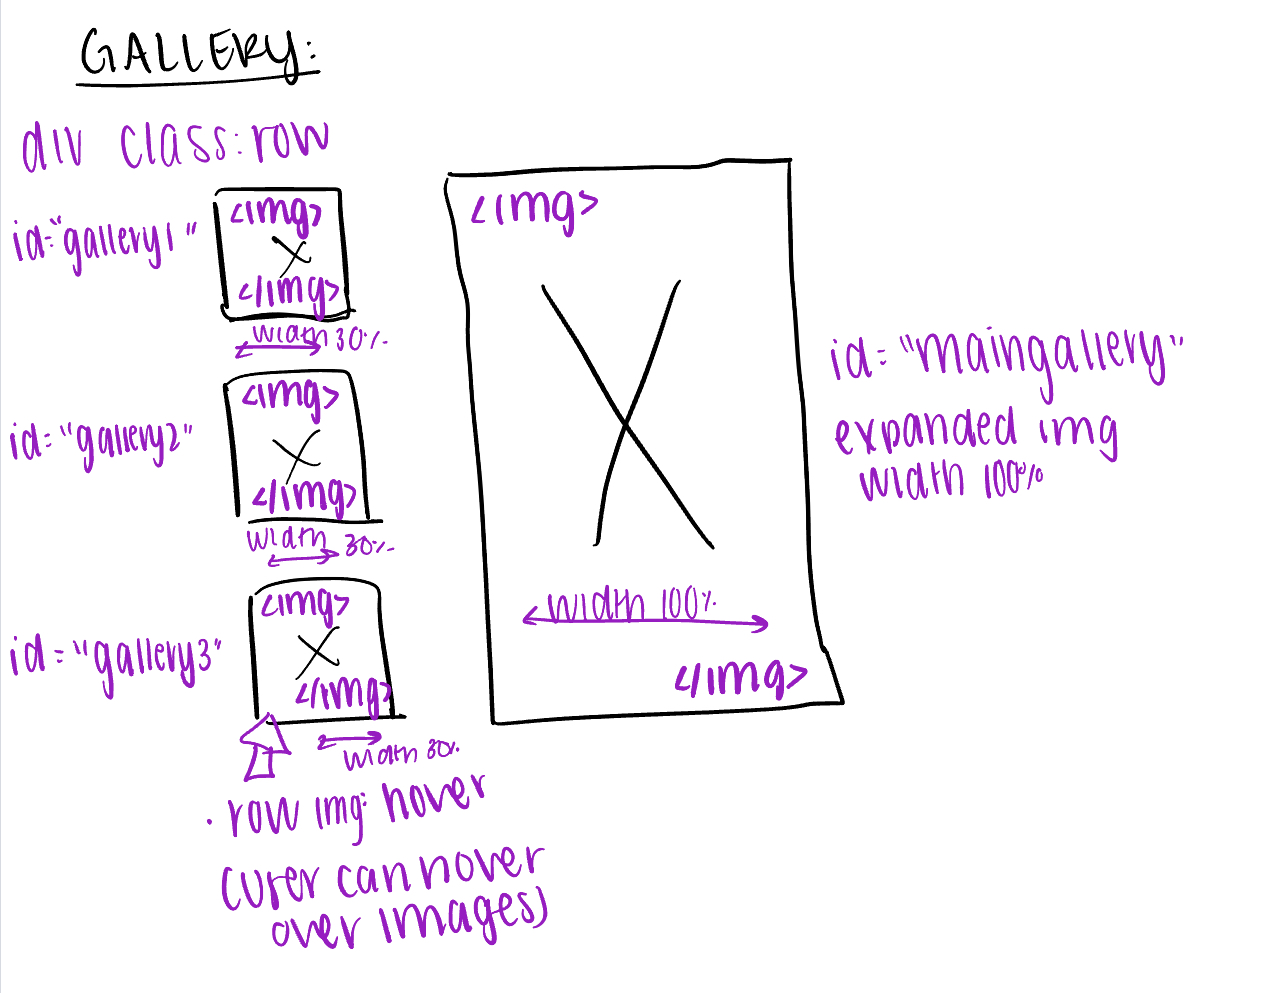 GALLERY:
div class: row
id="gallery1"
<img>
</img>
width 30%
id="gallery2"
<img>
</img>
width 30%
id="gallery3"
<img>
</img>
width 30%
· row img: hover
(user can hover
over images)
<img>
width 100%
</img>
id="maingallery"
expanded img
width 100%